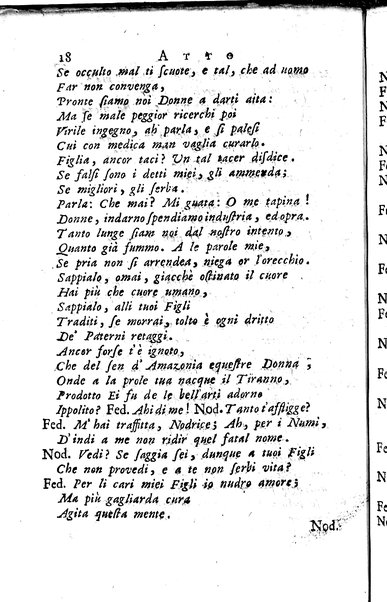 18 ATTO
Se occulto mal ti ſcuote, e tal, che ad uomo
Far non convenga,
Pronte ſiamo noi Donne a darti aita:
Ma ſe male peggior ricerchi poi
Virile ingegno, ah parla, e ſi paleſi
Cui con medica man vaglia curarlo.
Figlia, ancor taci? Un tal tacer diſdice.
Se falſi ſono i detti miei, gli ammenda;
Se migliori, gli ſerba.
Parla: Che mai? Mi guata: O me tapina!
Donne, indarno ſpendiamo induſtria, ed opra.
Tanto lunge ſiam noi dal noſtro intento,
Quanto già fummo. A le parole mie,
Se pria non ſi arrendea, niega or l'orecchio.
Sappialo, omai, giacchè oſtinato il cuore
Hai più che cuore umano,
Sappialo, alli tuoi Figli
Traditi, ſe morrai, tolto è ogni dritto
De' Paterni retaggi.
Ancor forſe t'è ignoto,
Che del ſen d'Amazonia equeſtre Donna;
Onde a la prole tua nacque il Tiranno,
Prodotto Ei fu de le bell'arti adorno
Ippolito? Fed. Ahi di me! Nod. Tanto t'affligge?
Fed. M'hai traffitta, Nodrice; Ah, per i Numi,
D'indi a me non ridir quel fatal nome.
Nod. Vedi? Se ſaggia ſei, dunque a tuoi Figli
Che non provedi, e a te non ſerbi vita?
Fed. Per li cari miei Figli io nudro amore;
Ma più gagliarda cura
Agita queſta mente.
Nod.